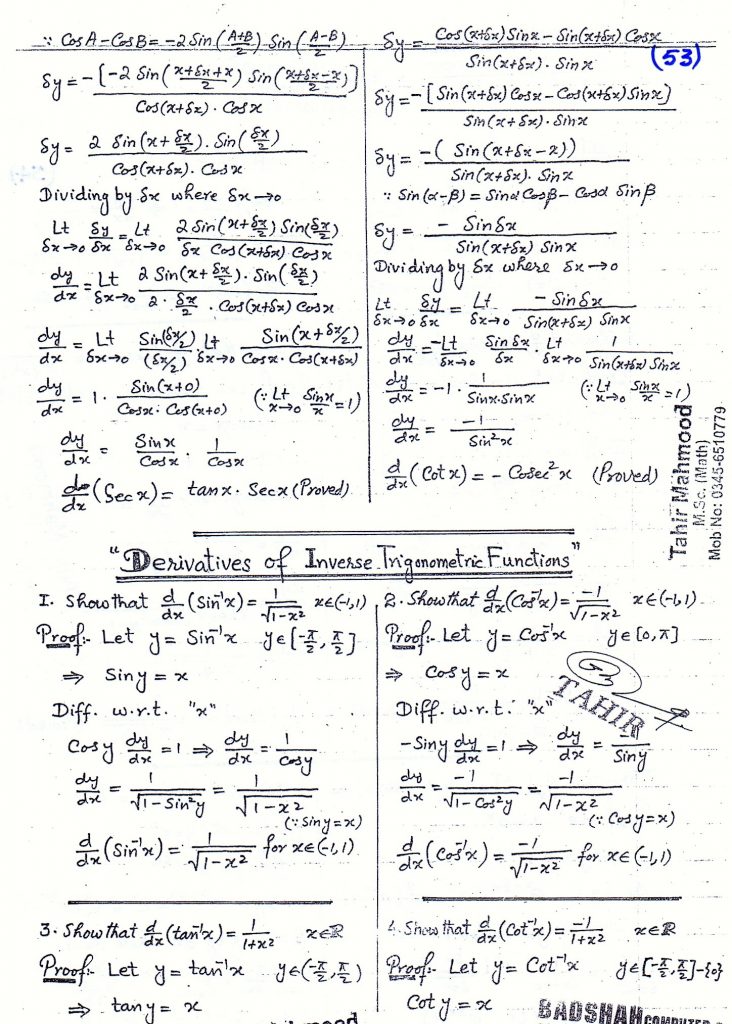 ∵ CosA − CosB = −2 Sin((A+B)/2) Sin((A−B)/2)
δy = −[−2 Sin((x+δx+x)/2) Sin((x+δx−x)/2)] / Cos(x+δx) · Cosx
δy = 2 Sin(x + δx/2) · Sin(δx/2) / Cos(x+δx) · Cosx
Dividing by δx where δx→0
Lt δx→0 δy/δx = Lt δx→0 2 Sin(x+δx/2) Sin(δx/2) / δx Cos(x+δx) Cosx
dy/dx = Lt δx→0 2 Sin(x+δx/2) · Sin(δx/2) / 2 · δx/2 · Cos(x+δx) Cosx
dy/dx = Lt δx→0 Sin(δx/2)/(δx/2) Lt δx→0 Sin(x+δx/2) / Cosx · Cos(x+δx)
dy/dx = 1 · Sin(x+0) / Cosx · Cos(x+0) (∵ Lt x→0 Sinx/x = 1)
dy/dx = Sinx/Cosx · 1/Cosx
d/dx (Secx) = tanx · Secx (Proved)
δy = Cos(x+δx) Sinx − Sin(x+δx) Cosx / Sin(x+δx) · Sinx
(53)
δy = −[Sin(x+δx) Cosx − Cos(x+δx) Sinx] / Sin(x+δx) · Sinx
δy = −(Sin(x+δx−x)) / Sin(x+δx) · Sinx
∵ Sin(α−β) = Sinα Cosβ − Cosα Sinβ
δy = − Sinδx / Sin(x+δx) Sinx
Dividing by δx where δx→0
Lt δx→0 δy/δx = Lt δx→0 − Sinδx / Sin(x+δx) Sinx
dy/dx = −Lt δx→0 Sinδx/δx · Lt δx→0 1 / Sin(x+δx) Sinx
dy/dx = −1 · 1/Sinx·Sinx (∵ Lt x→0 Sinx/x = 1)
dy/dx = −1/Sin²x
d/dx (Cotx) = − Cosec²x (Proved)
Tahir Mahmood
M.Sc. (Math)
Mob No: 0345-6510779
"Derivatives of Inverse Trigonometric Functions"
1. Show that d/dx (Sin⁻¹x) = 1/√(1−x²) x∈(-1,1)
Proof:- Let y = Sin⁻¹x y∈[-π/2, π/2]
⇒ Siny = x
Diff. w.r.t. "x"
Cosy dy/dx = 1 ⇒ dy/dx = 1/Cosy
dy/dx = 1/√(1−Sin²y) = 1/√(1−x²)
(∵ Siny = x)
d/dx (Sin⁻¹x) = 1/√(1−x²) for x∈(-1,1)
2. Show that d/dx (Cos⁻¹x) = −1/√(1−x²) x∈(-1,1)
Proof:- Let y = Cos⁻¹x y∈[0,π]
⇒ Cosy = x
TAHIR
Diff. w.r.t. "x"
−Siny dy/dx = 1 ⇒ dy/dx = −1/Siny
dy/dx = −1/√(1−Cos²y) = −1/√(1−x²)
(∵ Cosy = x)
d/dx (Cos⁻¹x) = −1/√(1−x²) for x∈(-1,1)
3. Show that d/dx (tan⁻¹x) = 1/1+x² x∈ℝ
Proof:- Let y = tan⁻¹x y∈(-π/2, π/2)
⇒ tany = x
4. Show that d/dx (Cot⁻¹x) = −1/1+x² x∈ℝ
Proof:- Let y = Cot⁻¹x y∈[-π/2, π/2]−{0}
Coty = x
BADSHAH COMPUTER